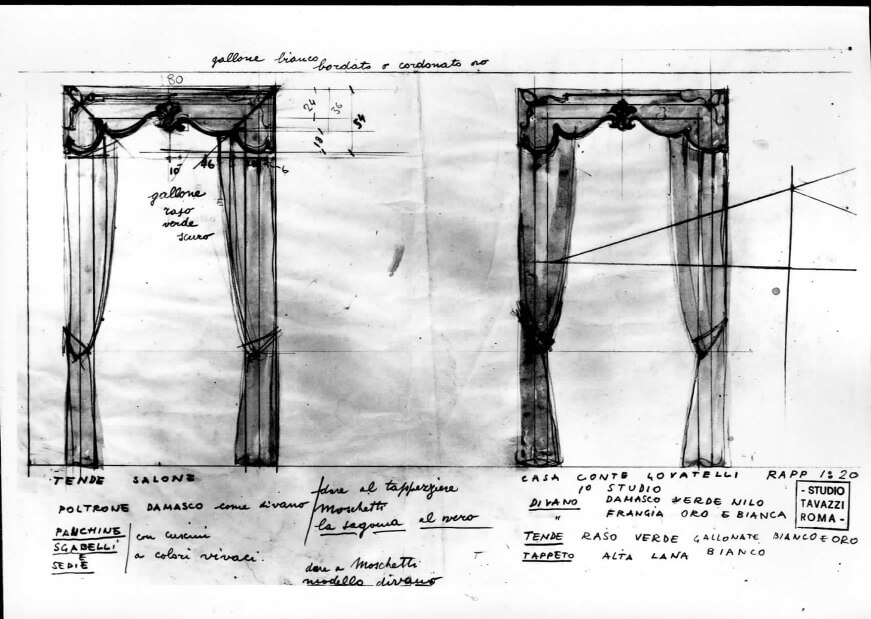 gallone bianco bordato o cordonato oro
80
24
36
54
18
10
46
6
gallone
raso
verde
scuro
TENDE SALONE
POLTRONE DAMASCO come divano
PANCHINE
SGABELLI
E
SEDIE
con cuscini
a colori vivaci.
dare al tappezziere
Moschetti
la sagoma al vero
dare a Moschetti
modello divano
CASA CONTE LOVATELLI RAPP 1:20
1º STUDIO
DIVANO DAMASCO VERDE NILO
" FRANGIA ORO E BIANCA
TENDE RASO VERDE GALLONATE BIANCO E ORO
TAPPETO ALTA LANA BIANCO
- STUDIO
TAVAZZI
ROMA -